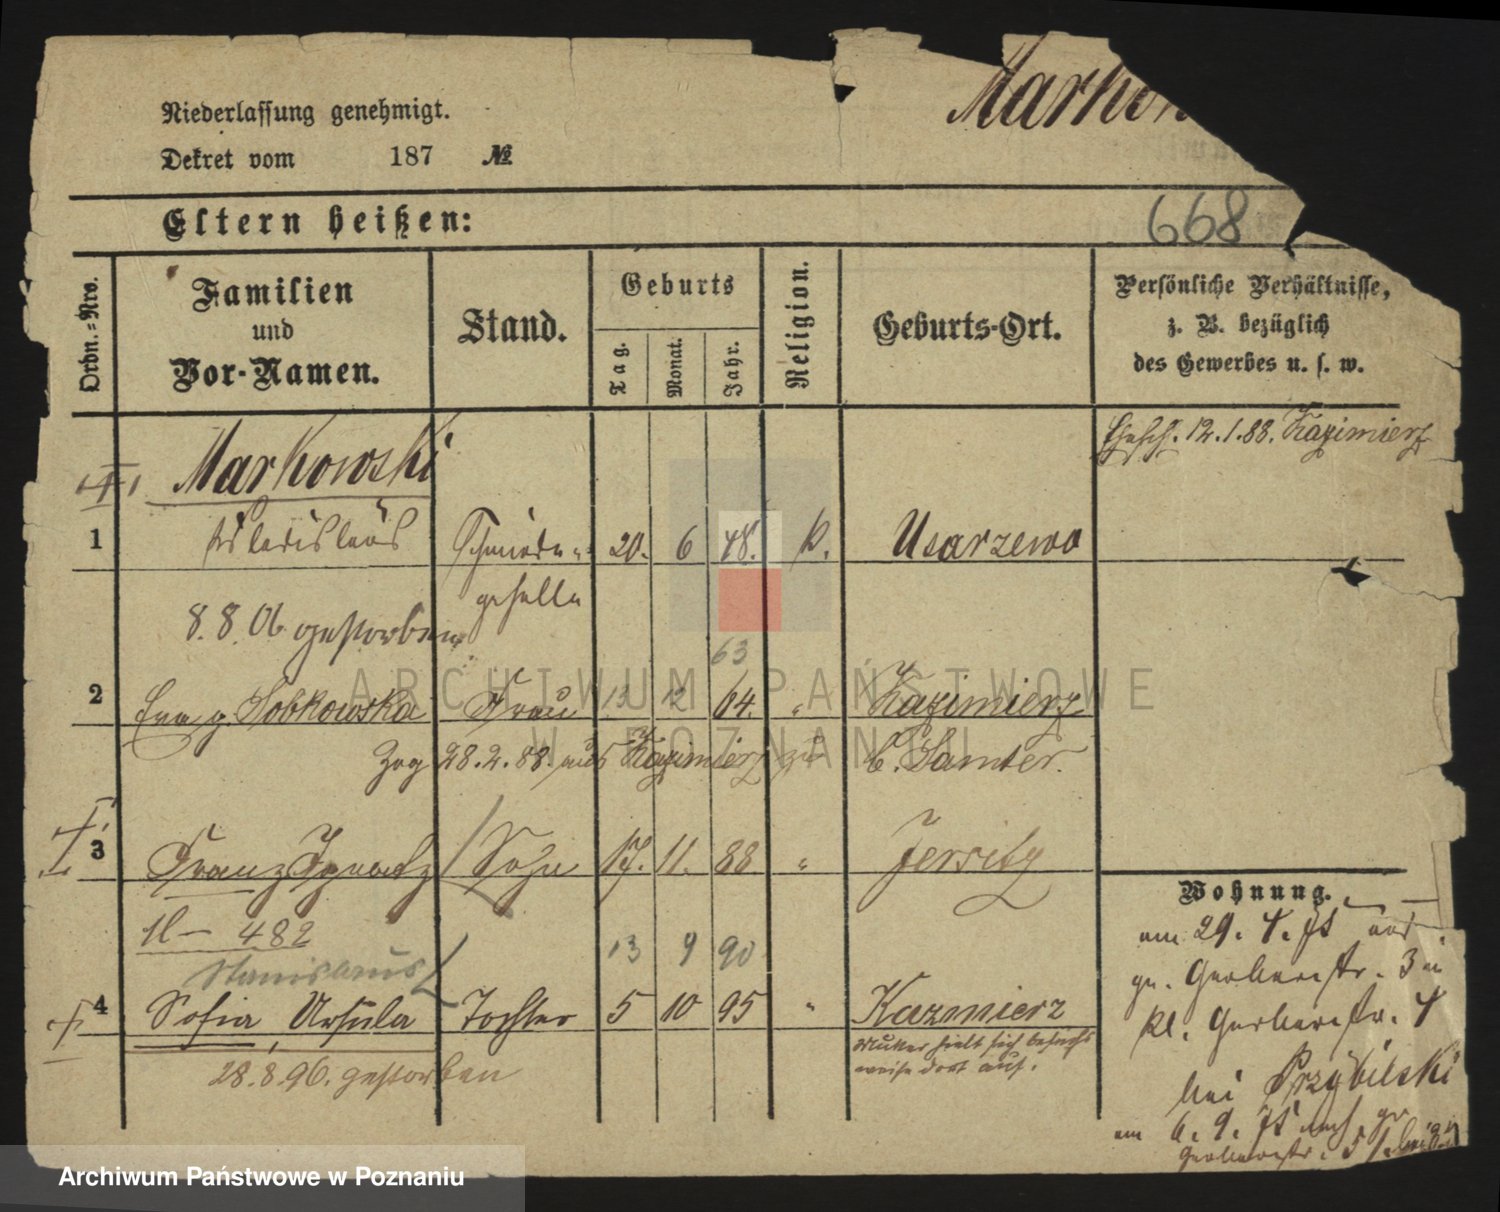 Niederlassung genehmigt.
Dekret vom 187 №
Markow
668
Eltern heißen:
Ordn.=Nro.
Familien
und
Vor-Namen.
Stand.
Geburts
Tag.
Monat.
Jahr.
Religion.
Geburts-Ort.
Persönliche Verhältnisse,
z. B. bezüglich
des Gewerbes u. s. w.
Ehesch. 12.1.88. Kazimierz
Markowski
1 Wladislaus Schmiede- 20. 6 48. k. Usarzewo
geselle
8.8.06 gestorben
63
2 Eva g. Sobkowska Frau 13 12 64. " Kazimierz
Zog 28.2.88. aus Kazimierz zu b. Samter.
3 Franz Ignatz Sohn 17. 11. 88 " Jersitz
482
Stanislaus 13 9 90
4 Sofia, Ursula Tochter 5 10 95 " Kazmierz
Mutter hielt sich besuchs
weise dort auf.
28.8.96. gestorben
Wohnung.
am 29. 4. von
gr. Gerberstr. 3 in
kl. Gerberstr. 4
bei Przybilski
am 6. 9. nach gr
Gerberstr. 51
ARCHIWUM PAŃSTWOWE
W POZNANIU
Archiwum Państwowe w Poznaniu